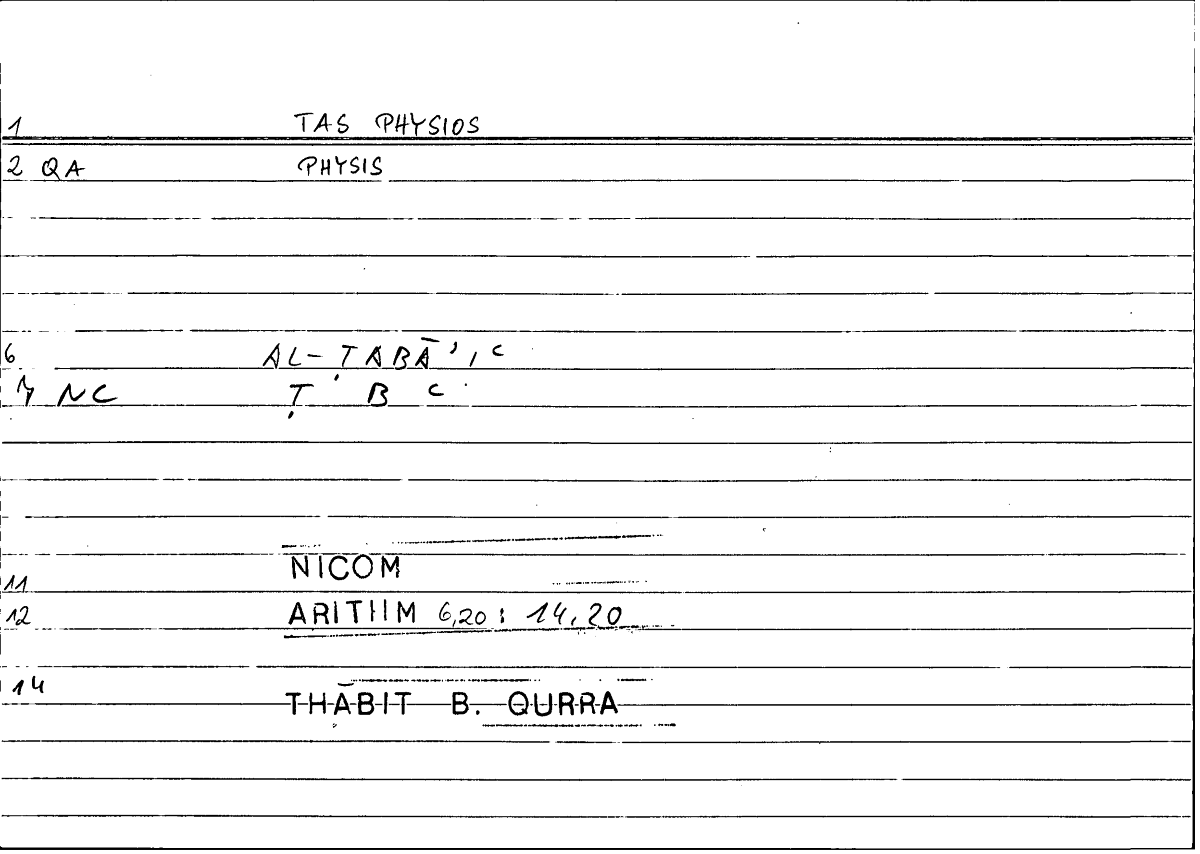 1 TAS PHYSIOS
2 QA PHYSIS
6 AL-ṬABĀʾIʿ
7 NC Ṭ B ʿ
11 NICOM
12 ARITHM 6,20 : 14,20
14 THĀBIT B. QURRA